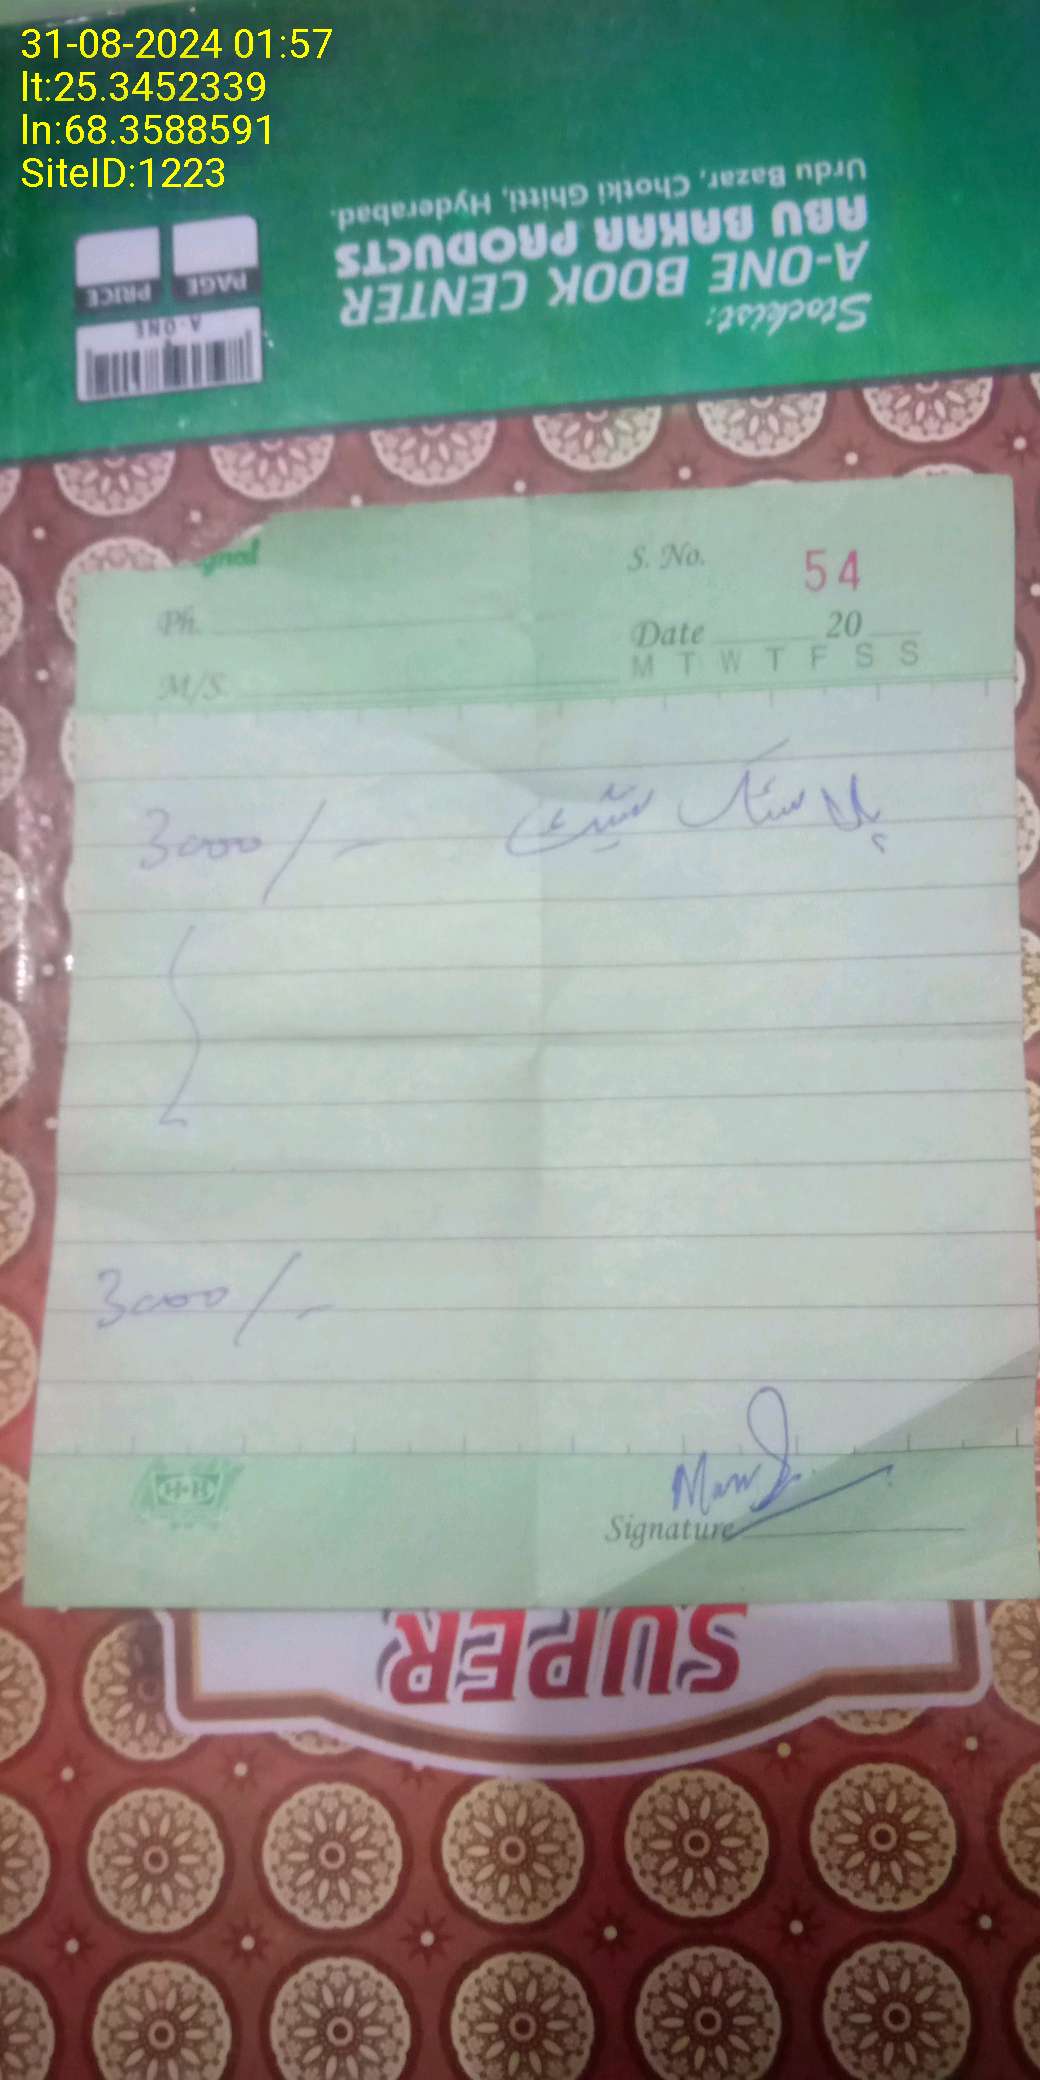 31-08-2024 01:57
lt:25.3452339
ln:68.3588591
SiteID:1223
Urdu Bazar, Chotki Ghitti, Hyderabad.
ABU BAKAR PRODUCTS
A-ONE BOOK CENTER
Stockist:
PAGE PRICE
A-ONE
S. No. 54
Ph.
Date 20
M T W T F S S
M/S.
پلاسٹک شیٹ 3000/-
3000/-
H+H
Signature
SUPER